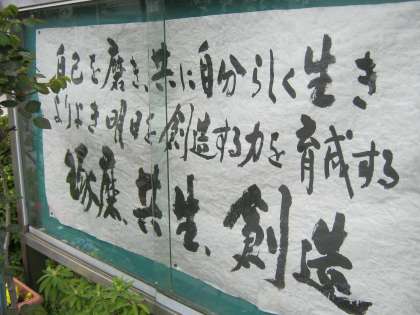 自己を磨き、共に自分らしく生き
よりよき明日を創造する力を育成する
琢磨、共生、創造